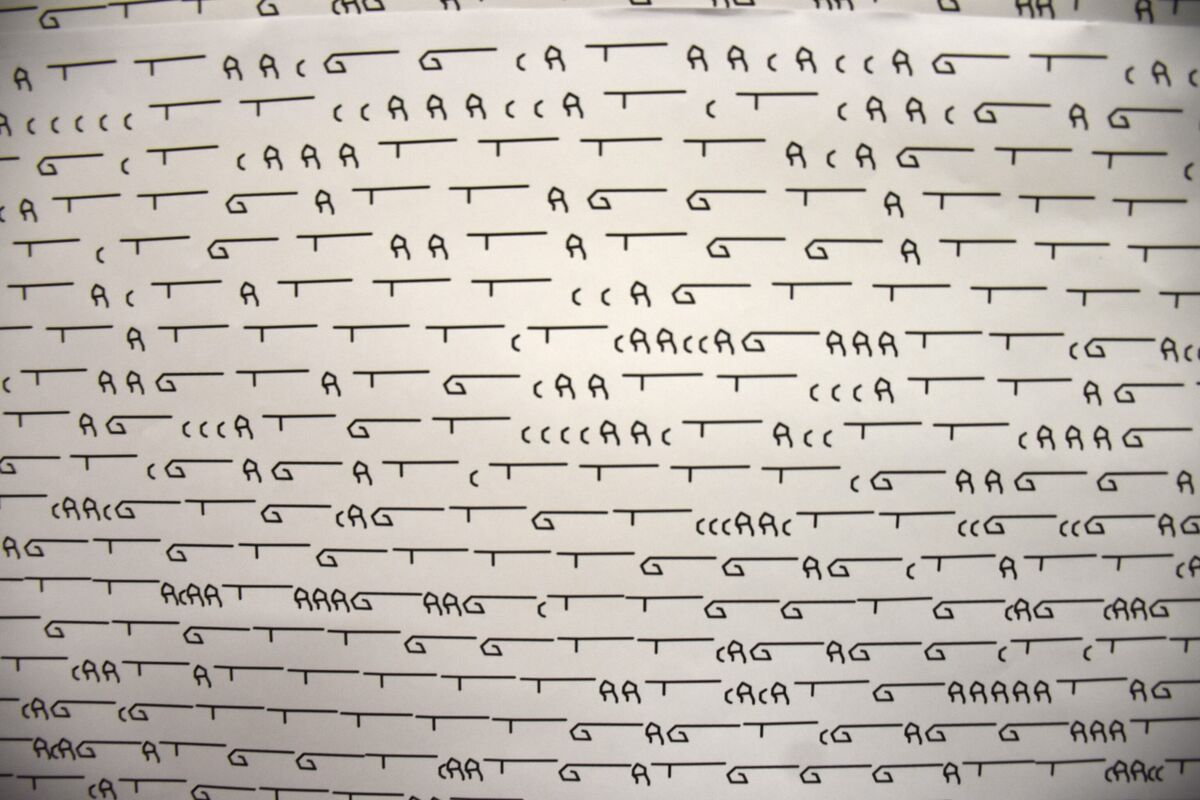 ATTAACGGCATAACACCAGTCAC
ACCCCCTTCCAAACCATCTCAACGAG
GCTCAAATTTTACAGTTC
CATTGATTAGGTATTT
TCTGTAATATGGATTT
TACTATTTCCAGTTTTT
TATTTTCTCAACCAGAAATTCGACC
CTAAGTATGCAATTCCCATTAG
TAGCCCATGTCCCCAACTACCTTCAAAG
GTCGAGATCTTTTCGAAGGA
CAACGTGCAGTGTCCCAACTTCCGCCGAG
AGTGTGTTTGGAGCTATTCA
TTACAATAAAGAAGCTTGGTGCAGCAAG
GTGTTGGTTCAGAGGCTCTT
TCAATATTTTTAATCACATGAAAAATAG
CAGCGTTTTTGAGTCGAGGAAAT
ACAGATGGTCAATGATGGGATTCAACCT
TCATGTT